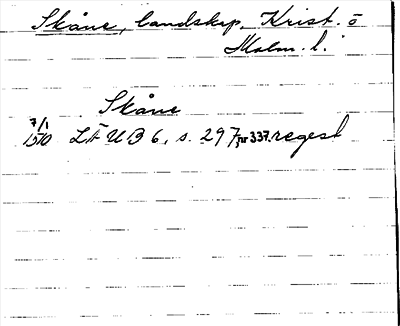 Skåne, landskap. Krist. o
Malm. l.
Skåne
7/1
1510 LÄUB 6, s. 297 nr 337. regest